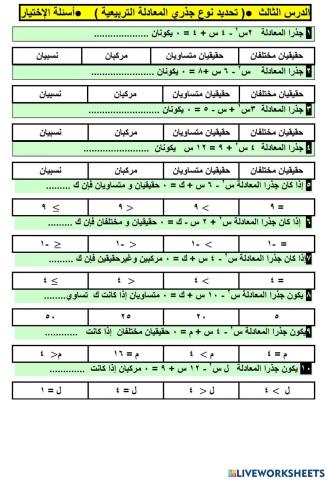 الدرس الثالث •( تحديد نوع جذري المعادلة التربيعية ) •أسئلة الإختيار
١ جذرا المعادلة ٢س٢ - ٤ س + ٤ = ٠ يكونان .....................
حقيقيان مختلفان حقيقيان متساويان مركبان نسبيان
٢ جذرا المعادلة س٢ - ٦ س + ٨ = ٠ يكونان .....................
حقيقيان مختلفان حقيقيان متساويان مركبان نسبيان
٣ جذرا المعادلة ٣س٢ + س - ٥ = ٠ يكونان .....................
حقيقيان مختلفان حقيقيان متساويان مركبان نسبيان
٤ جذرا المعادلة ٤ س٢ + ٩ = ١٢ س يكونان .....................
حقيقيان مختلفان حقيقيان متساويان مركبان نسبيان
٥ إذا كان جذرا المعادلة س٢ - ٦ س + ك = ٠ حقيقيان و متساويان فإن ك .........
= ٩ > ٩ < ٩ ≥ ٩
٦ إذا كان جذرا المعادلة س٢ + ٢ س - ك = ٠ حقيقيان و مختلفان فإن ك .........
= -١ > -١ < -١ ≤ -١
٧ إذا كان جذرا المعادلة س٢ - ٤ س + ك = ٠ مركبين وغيرحقيقين فإن ك .........
= ٤ > ٤ < ٤ ≥ ٤
٨ يكون جذرا المعادلة س٢ - ١٠ س + ك = ٠ متساويان إذا كانت ك تساوي.........
٥ ٢٠ ٢٥ ٥٠
٩ يكون جذرا المعادلة س٢ - ٤ س + م = ٠ حقيقيان مختلفان إذا كانت ............
م = ٤ م > ٤ م = ١٦ م< ٤
١٠ يكون جذرا المعادلة ل س٢ - ١٢ س + ٩ = ٠ مركبان إذا كانت .............
ل > ٤ ل < ٤ ل = ٤ ل = ١
LIVEWORKSHEETS